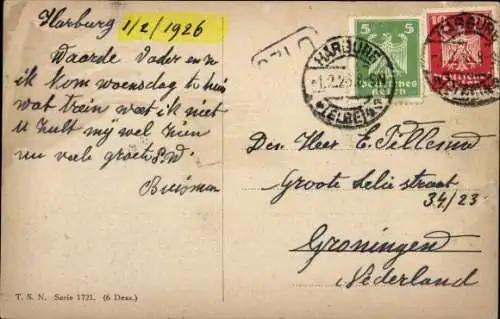 Harburg 1/2/1926
Waarde Vader en
ik kom woensdag te huis
wat trein weet ik niet
u zult mij wel zien
nu vele groet
Buisman
5
HARBURG
1.2.26
Deutsches
(ELBE)
10
HARBURG
Den Heer E. Tillema
Groote Lelie straat
34/23
Groningen
Nederland
T. S. N. Serie 1721. (6 Dess.)